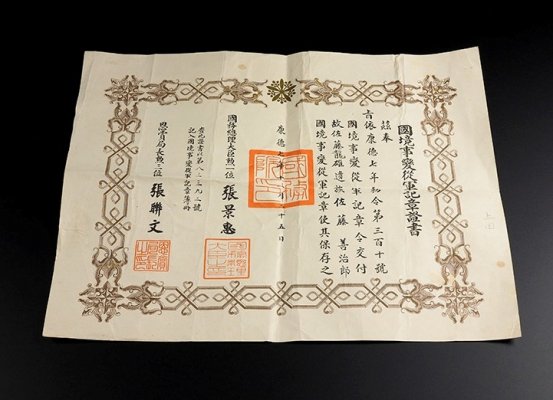 國境事變從軍記章證書
茲奉
旨依康德七年勅令第三百十號
國境事變從軍記章令交付
故佐藤龍雄遺族佐藤善治郎
國境事變從軍記章使其保存之
康德七年十月十五日
國務總理大臣勳一位張景惠
此證書以第八三三九二號
記入國境事變從軍記章簿冊
恩賞局長勳二位張聯文